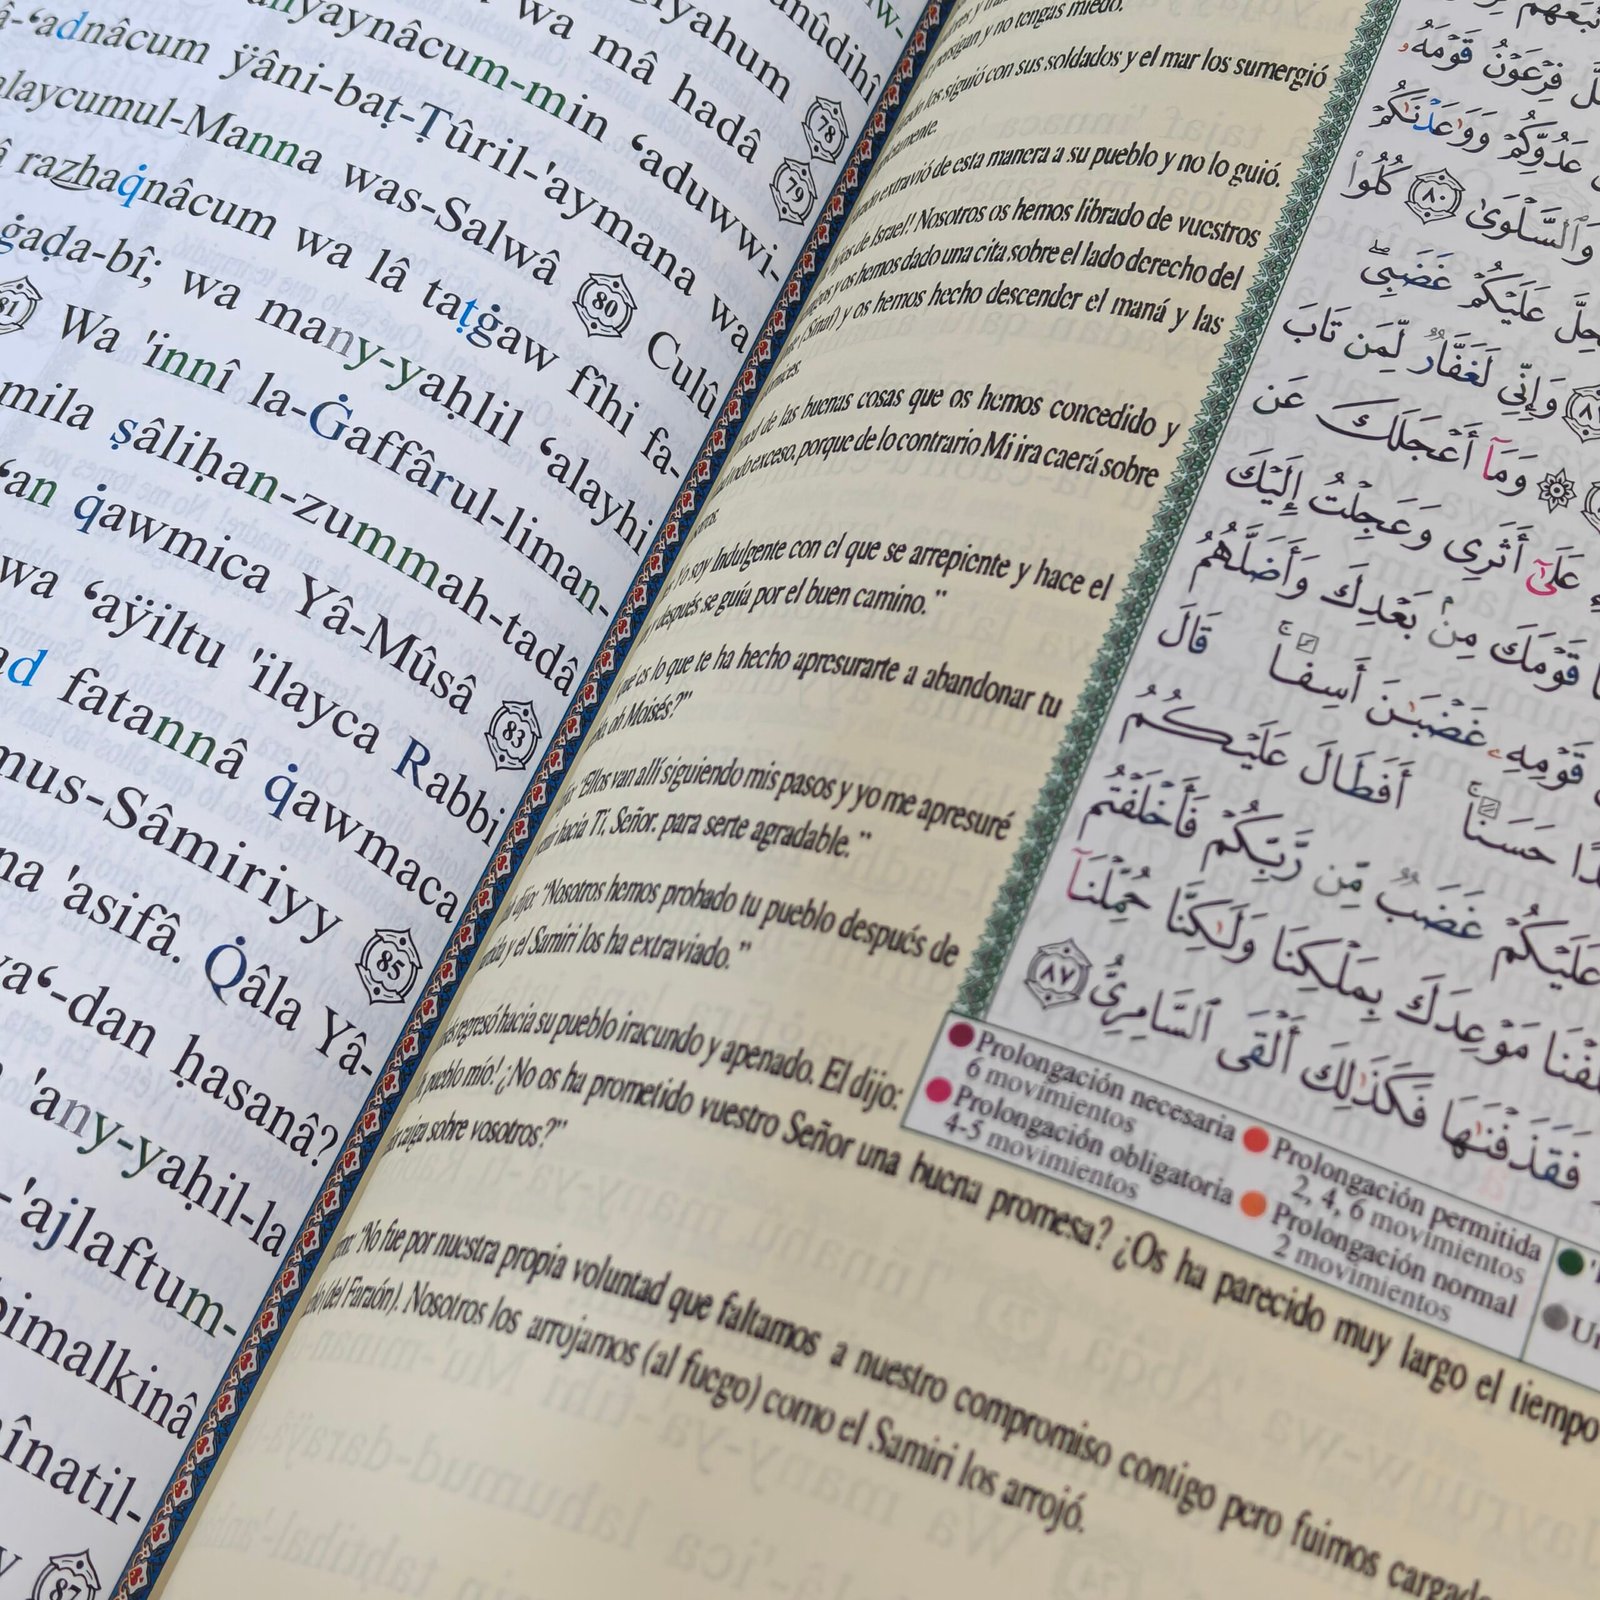 wa mâ hadâ 79
â-‘adnâcum ÿâni-baṭ-Ṭûril-'aymana wa
alaycumul-Manna was-Salwâ 80 Culû
razhaq̇nâcum wa lâ taṭġaw fîhi fa-
ġaḍa-bî; wa many-yaḥlil ‘alayhi
81 Wa 'innî la-Ġaffârul-liman-
mila ṣâliḥan-zummah-tadâ
‘an q̇awmica Yâ-Mûsâ 83
wa ‘aÿiltu 'ilayca Rabbi
ad fatannâ q̇awmaca
mus-Sâmiriyy 85
na 'asifâ. Q̇âla Yâ-
wa‘-dan ḥasanâ?
'any-yaḥil-la
-'ajlaftum-
bimalkinâ
înatil-
87
y no tengas miedo.
los siguió con sus soldados y el mar los sumergió
extravió de esta manera a su pueblo y no lo guió.
hijos de Israel! Nosotros os hemos librado de vuestros
y os hemos dado una cita sobre el lado derecho del
(Sinaí) y os hemos hecho descender el maná y las
de las buenas cosas que os hemos concedido y
exceso, porque de lo contrario Mi ira caerá sobre
Yo soy Indulgente con el que se arrepiente y hace el
y después se guía por el buen camino.”
qué es lo que te ha hecho apresurarte a abandonar tu
oh Moisés?”
“Ellos van allí siguiendo mis pasos y yo me apresuré
hacia Ti, Señor, para serte agradable.”
dijo: “Nosotros hemos probado tu pueblo después de
y el Samiri los ha extraviado.”
regresó hacia su pueblo iracundo y apenado. El dijo:
pueblo mío! ¿No os ha prometido vuestro Señor una buena promesa? ¿Os ha parecido muy largo el tiempo
caiga sobre vosotros?”
“No fue por nuestra propia voluntad que faltamos a nuestro compromiso contigo pero fuimos
(del Faraón). Nosotros los arrojamos (al fuego) como el Samiri los arrojó.
فِرْعَوْنُ قَوْمَهُۥ
عَدُوِّكُمْ وَوَٰعَدْنَٰكُمْ
وَٱلسَّلْوَىٰ ٨٠ كُلُوا۟
عَلَيْكُمْ غَضَبِى
وَإِنِّى لَغَفَّارٌ لِّمَن تَابَ
وَمَآ أَعْجَلَكَ عَن
عَلَىٰٓ أَثَرِى وَعَجِلْتُ إِلَيْكَ
قَوْمَكَ مِنۢ بَعْدِكَ وَأَضَلَّهُمُ
قَوْمِهِۦ غَضْبَٰنَ أَسِفًا قَالَ
حَسَنًا أَفَطَالَ عَلَيْكُمُ
عَلَيْكُمْ غَضَبٌ مِّن رَّبِّكُمْ فَأَخْلَفْتُم
مَوْعِدَكَ بِمَلْكِنَا وَلَٰكِنَّا حُمِّلْنَآ
فَقَذَفْنَٰهَا فَكَذَٰلِكَ أَلْقَى ٱلسَّامِرِىُّ ٨٧
Prolongación necesaria
6 movimientos
Prolongación obligatoria
4-5 movimientos
Prolongación permitida
2, 4, 6 movimientos
Prolongación normal
2 movimientos